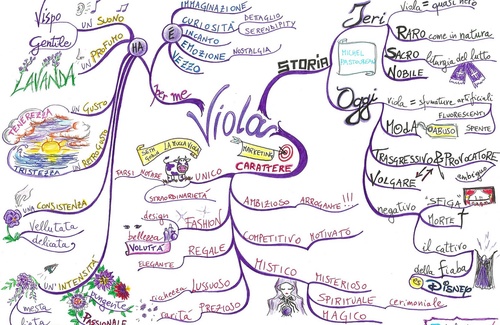 Viola
per me
È
IMMAGINAZIONE
CURIOSITÀ
DETAGLIO
SERENDIPITY
INCANTO
EMOZIONE
NOSTALGIA
VEZZO
HA
un SUONO
Vispo
Gentile
un PROFUMO
LAVANDA
un GUSTO
TENEREZZA
un RETROGUSTO
TRISTEZZA
una CONSISTENZA
Vellutata
delicata
un'INTENSITÀ
mesta
lieta
pungente
PASSIONALE
STORIA
MICHEL
PASTOUREAU
Ieri
Viola = quasi nero
RARO come in natura
SACRO
NOBILE
liturgia del lutto
Oggi
viola = sfumature artificiali
MODA
FLUORESCENTI
ABUSO
SPENTE
TRASGRESSIVO & PROVOCATORE
VOLGARE
negativo
"SFIGA"
MORTE
il cattivo
della fiaba
DISNEY
MARKETING
CARATTERE
SETH
GODIN
LA MUCCA VIOLA
FARSI NOTARE
UNICO
STRAORDINARIETÀ
design
FASHION
bellezza
VOLUTTÀ
REGALE
ELEGANTE
ricchezza
LUSSUOSO
rarità
PREZIOSO
AMBIZIOSO
ARROGANTE!!!
COMPETITIVO
MOTIVATO
MISTICO
MISTERIOSO
SPIRITUALE
cerimoniale
MAGICO